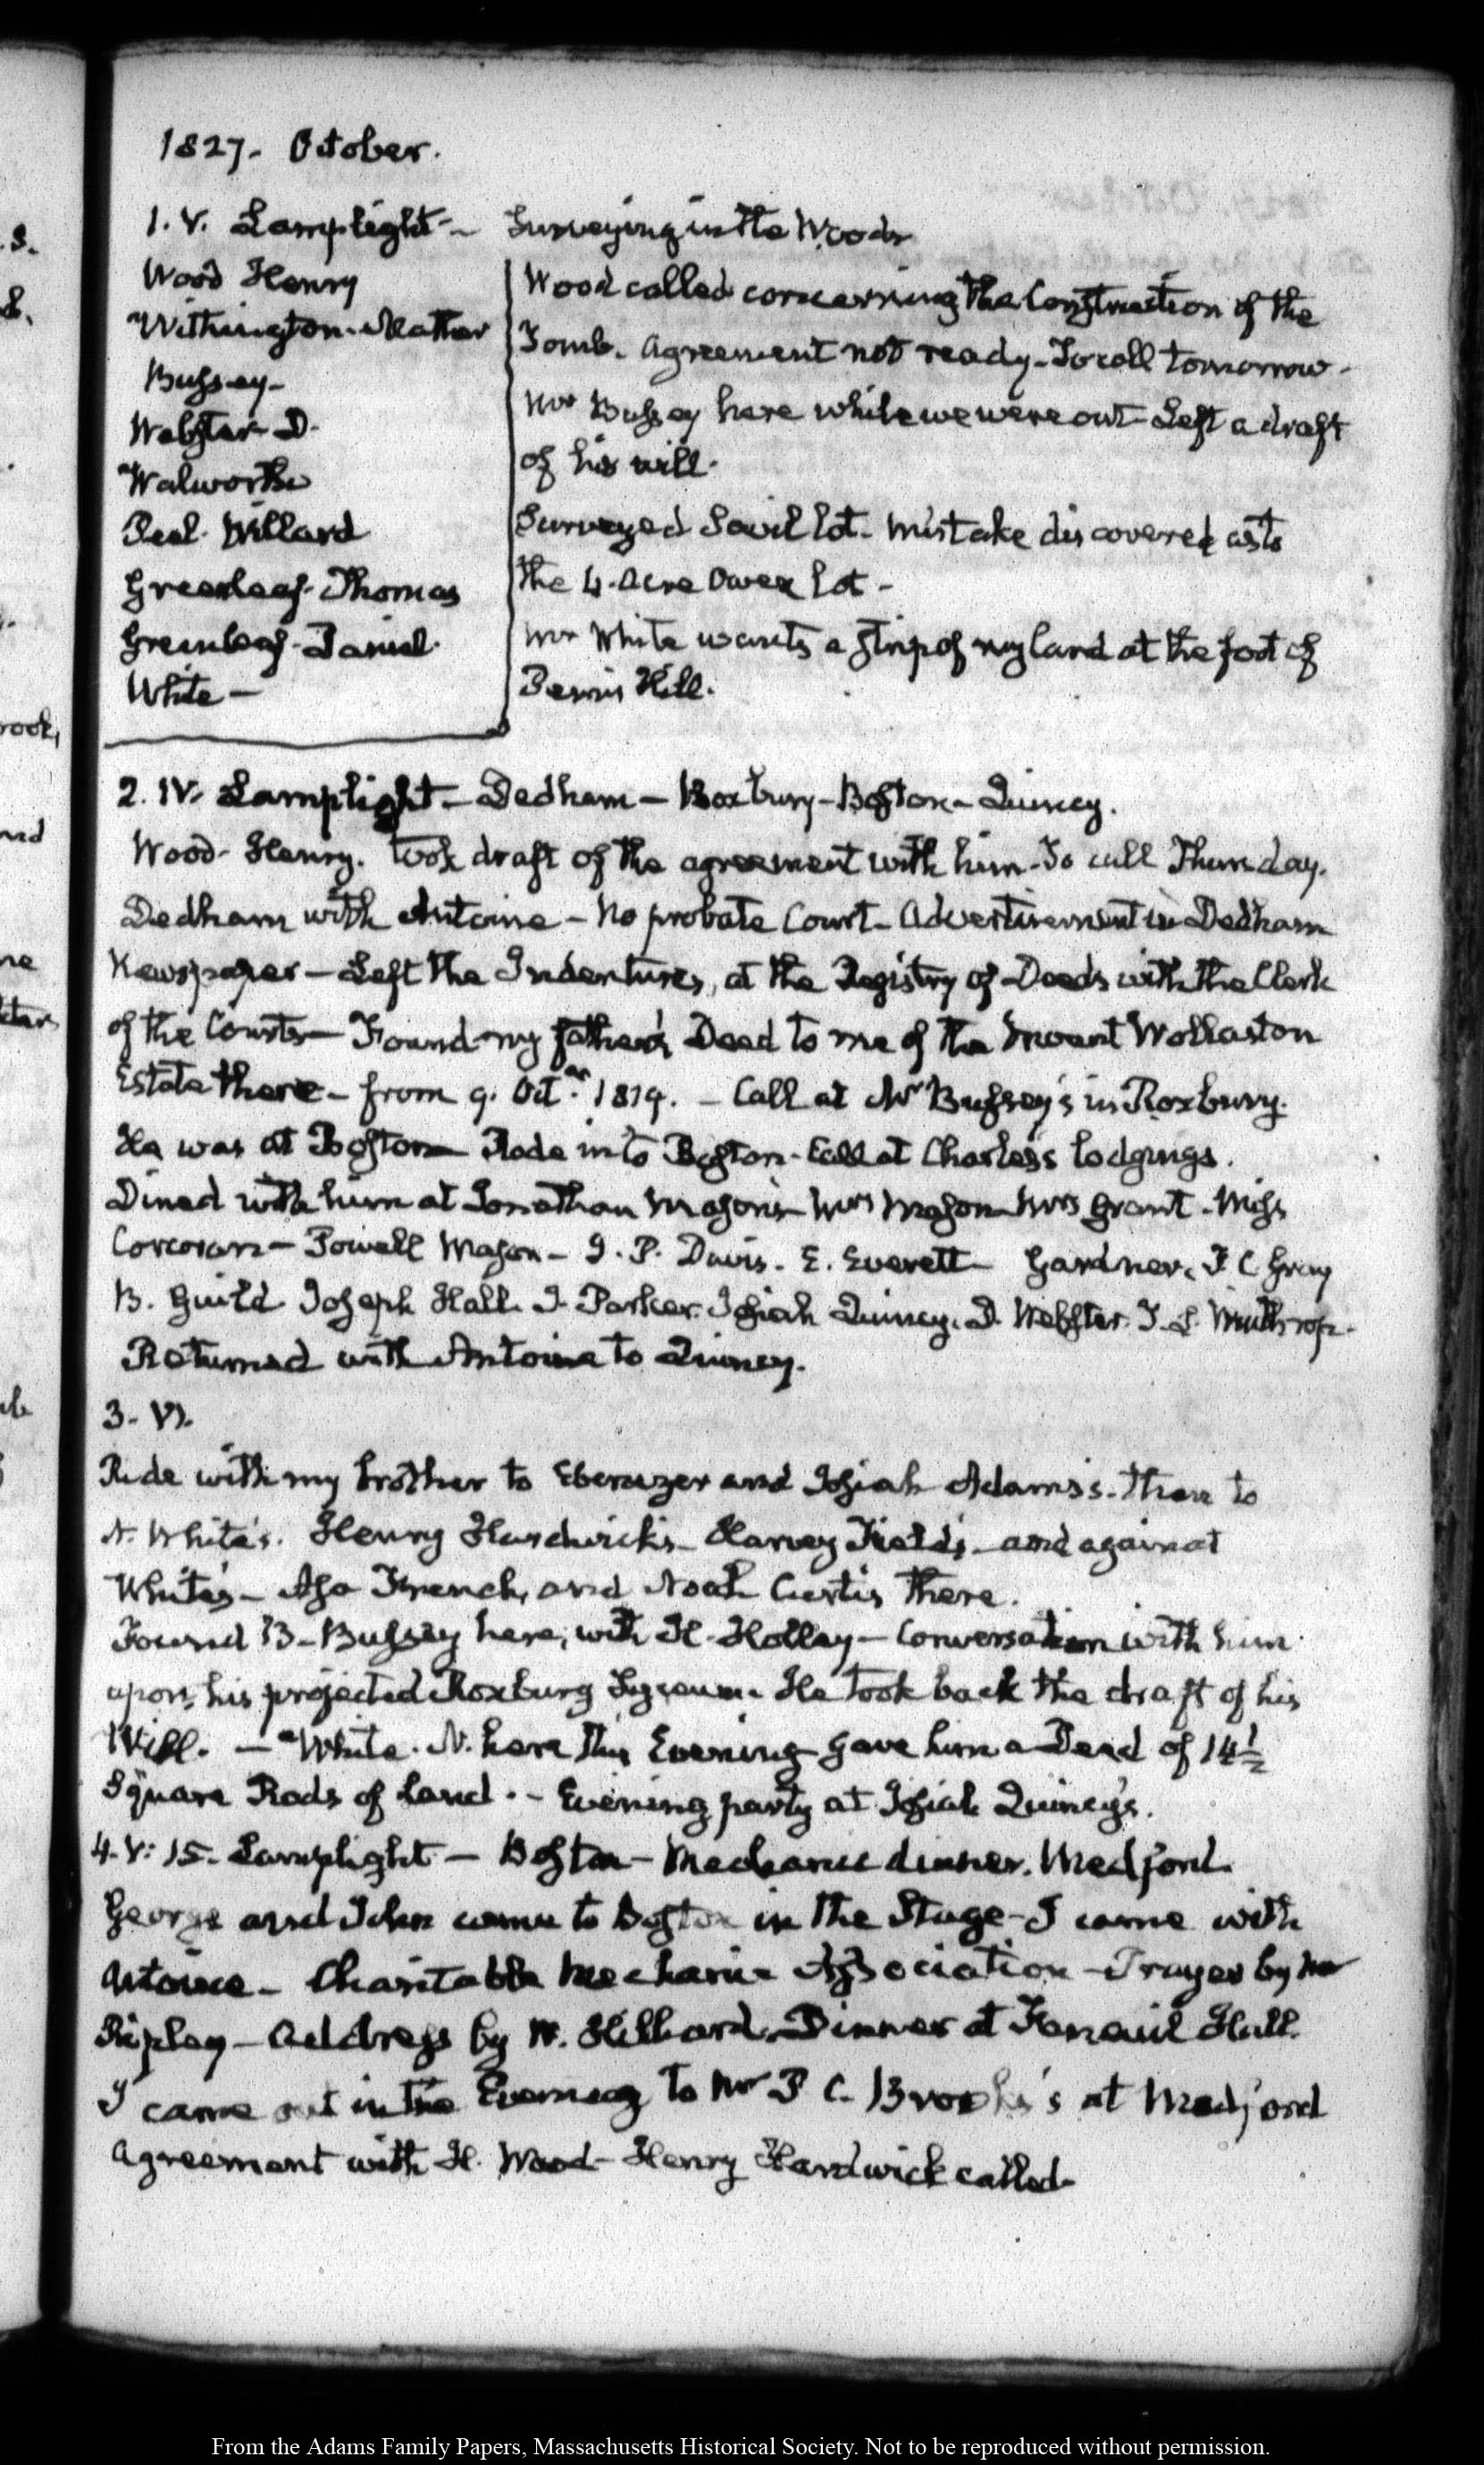 1827. October.
1. V. Lamplight — Surveying in the Woods
Wood Henry
Withington. Mather
Bussey—
Webster D.
Walworth
Peal. Willard
Greenleaf. Thomas
Greenleaf. Daniel.
White —
Wood called concerning the Construction of the
Tomb. Agreement not ready. To call tomorrow.
Mr Bussey here while we were out. Left a draft
of his will.
Surveyed Savil lot. Mistake discovered as to
the 4. Acre Owen lot —
Mr White wants a strip of my land at the foot of
Penn's Hill.
2. IV. Lamplight — Dedham — Roxbury — Boston — Quincy.
Wood. Henry. took draft of the agreement with him. To call Thursday.
Dedham with Antoine — No probate Court. Advertisement in Dedham
Newspaper — Left the Indentures, at the Registry of Deeds with the Clerk
of the Courts — Found my father's Deed to me of the Mount Wollaston
Estate there — from 9. Octr. 1819. — Call at Mr Bussey's in Roxbury.
He was at Boston Rode into Boston. Call at Charles's lodgings.
Dined with him at Jonathan Mason's Mrs Mason Mrs Grant. Miss
Corcoran — Powell Mason — I. P. Davis. E. Everett — Gardner. F. C. Gray
B. Guild Joseph Hall. I. Parker. Josiah Quincy. D. Webster. T. L. Winthrop.
Returned with Antoine to Quincy.
3. VI.
Ride with my brother to Ebenezer and Josiah Adams's. then to
N. White's. Henry Hardwick's. Harvey Field's. and again at
White's — Asa French, and Noah Curtis there.
Found B. Bussey here, with H. Holley — Conversation with him
upon his projected Roxbury Lyceum. He took back the draft of his
Will. — White. N. here this Evening gave him a Deed of 14½
Square Rods of Land. — Evening party at Josiah Quincy's.
4. V: 15. Lamplight — Boston — Mechanic dinner. Medford.
George and John came to Boston in the Stage — I came with
Antoine. Charitable Mechanic Association — Prayer by Mr
Ripley — Address by W. Hilliard. Dinner at Faneuil Hall.
I came out in the Evening to Mr P. C. Brooks's at Medford
Agreement with H. Wood — Henry Hardwick called.
From the Adams Family Papers, Massachusetts Historical Society. Not to be reproduced without permission.